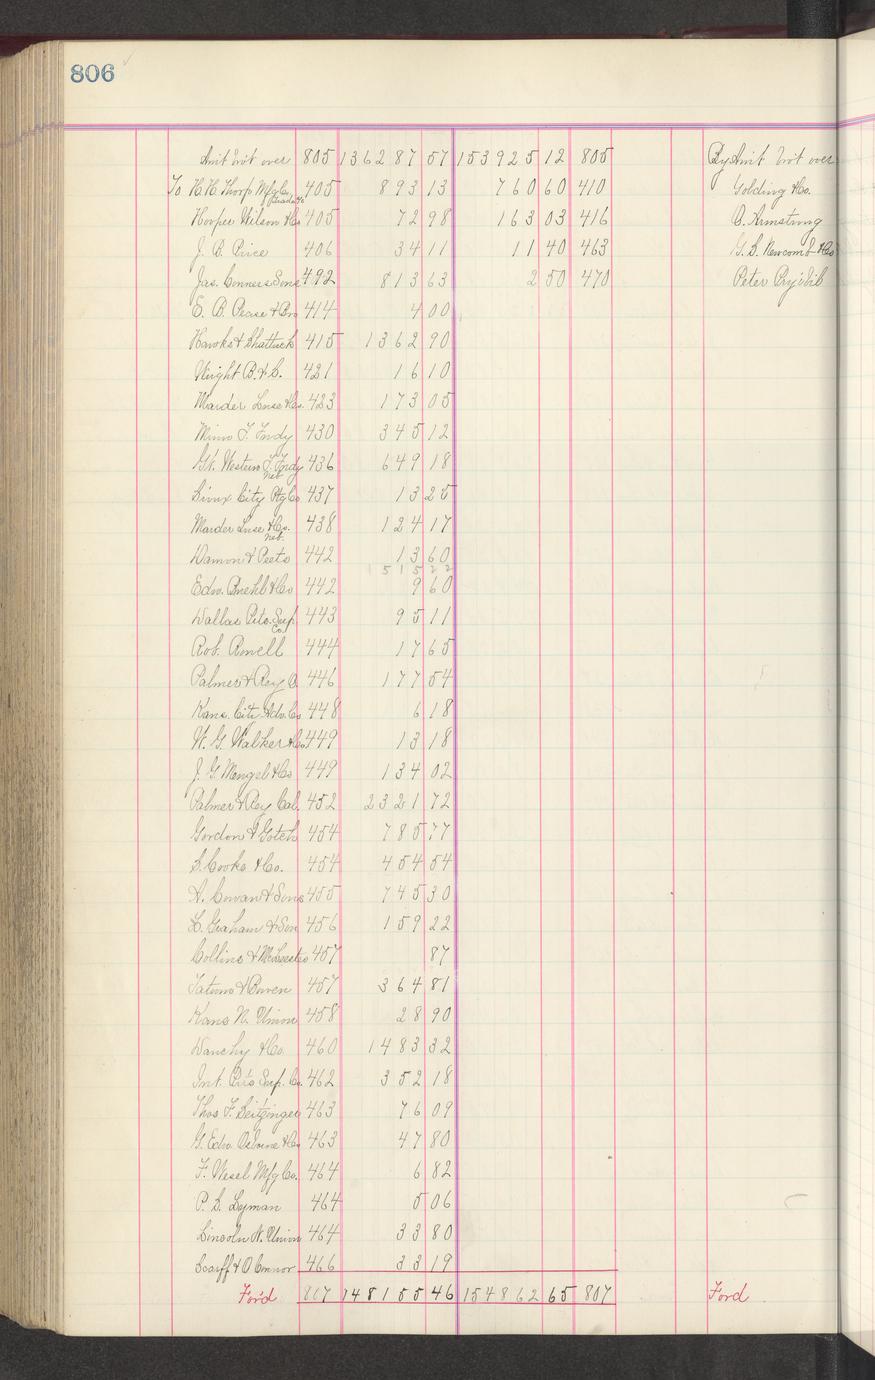 806
Am't br't over 805 136287 57 153925 12 805 By Am't br't over
To H.H. Thorp Mfg Co. 405 893 13 760 60 410 Golding & Co.
Hooper Wilson & Co 405 72 98 163 03 416 C. Armstrong
J. B. Price 406 34 11 11 40 463 G. S. Newcomb & Co
Jas. Conners Sons 492 813 63 2 50 470 Peter Pryibil
E. B. Pease & Bro 414 4 00
Hawks & Shattuck 415 1362 90
Wright B. & S. 421 16 10
Marder Luse & Co. 423 173 05
Minn T. Fndy 430 345 12
Gt. Western T. Fndy 436 649 18
net
Sioux City Ptg Co 437 13 25
Marder Luse & Co. 438 124 17
net.
Damon & Peets 442 13 60
5 1 5 22
Edw. Buehl & Co 442 9 60
Dallas Ptrs. Sup. 443 95 11
Co.
Rob. Rowell 444 17 65
Palmer & Rey O. 446 177 54
Kans. City Adv. Co 448 6 18
W. G. Walker & Co 449 13 18
J. G. Mengel & Co 449 134 02
Palmer & Rey Cal. 452 2321 72
Gordon & Gotch 454 785 77
S. Cooke & Co. 454 454 54
A. Cowan & Sons 455 745 30
H. Graham & Son 456 159 22
Collins & McLeester 457 87
Tatum & Bowen 457 364 81
Kans N. Union 458 28 90
Wanchy & Co. 460 1483 32
Int. Prs Sup. Co. 462 352 18
Thos F. Seitzinger 463 76 09
G. Edw. Osborne & Co 463 47 80
F. Wesel Mfg Co. 464 6 82
P. S. Lyman 464 5 06
Lincoln N. Union 464 33 80
Scarff & O'Connor 466 33 19
Ford 807 148155 46 154862 65 807 Ford